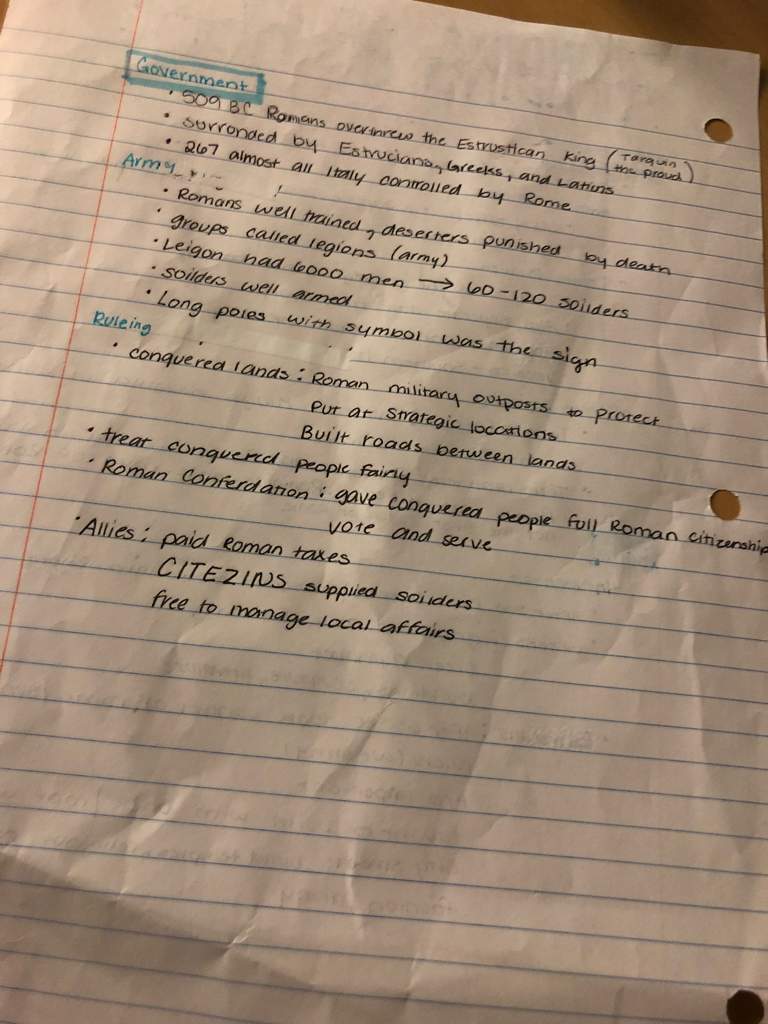 Government
• 509 BC Romans overthrew the Estrustican King (Tarquin the proud)
• surronded by Estrucians, Greeks, and Latins
• 267 almost all Italy controlled by Rome
Army
• Romans well trained, deserters punished by death
• groups called legions (army)
• Leigon had 6000 men → 60-120 soilders
• soilders well armed
• Long poles with symbol was the sign
Ruleing
• conquered lands: Roman military outposts to protect
Put at strategic locations
Built roads between lands
• treat conquered people fairly
• Roman Conferdation: gave conquered people full Roman citizenship
vote and serve
• Allies: paid Roman taxes
CITEZINS supplied soilders
free to manage local affairs